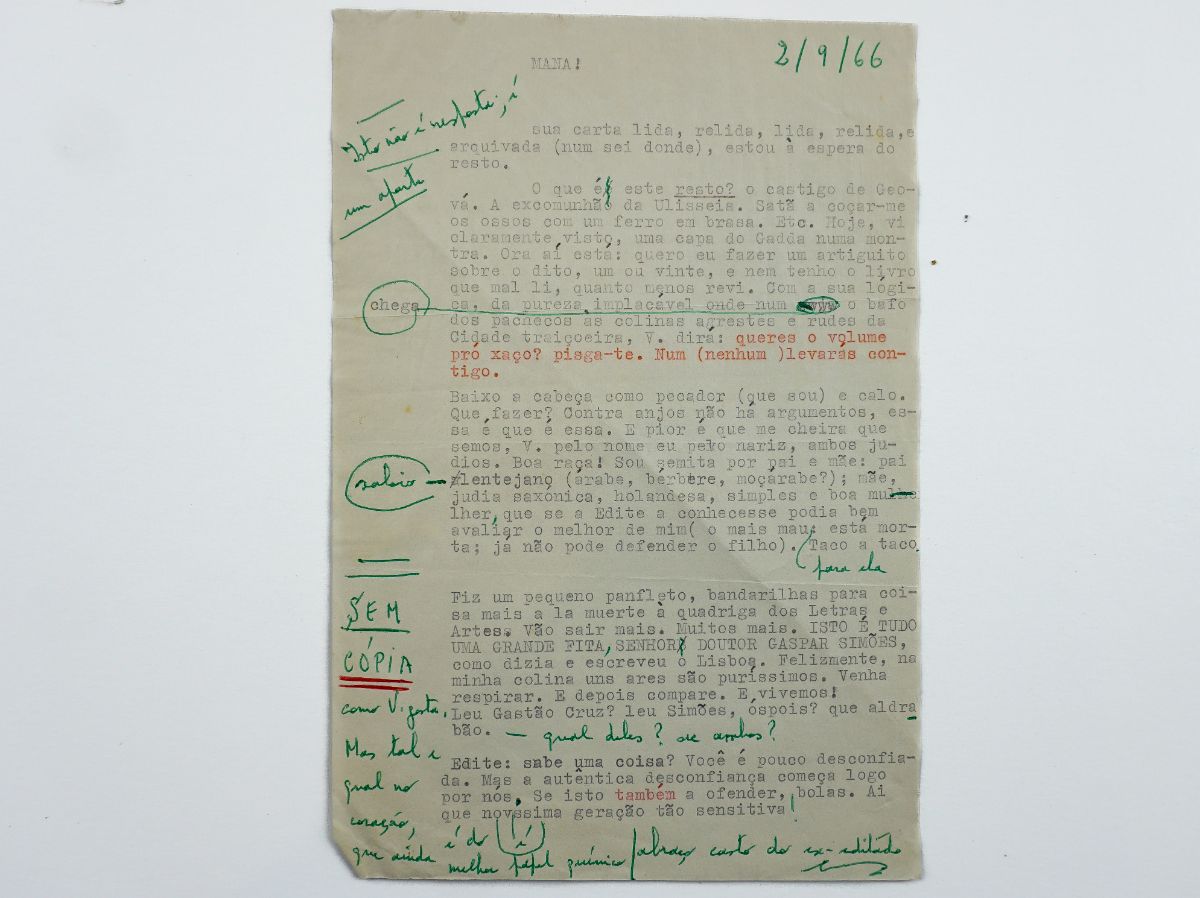 2/9/66
MANA!
Isto não é resposta; é
um aparte
sua carta lida, relida, lida, relida,e
arquivada (num sei donde), estou à espera do
resto.
O que é este resto? o castigo de Geo-
vá. A excomunhão da Ulisseia. Satã a coçar-me
os ossos com um ferro em brasa. Etc. Hoje, vi
claramente visto, uma capa do Gadda numa mon-
tra. Ora aí está: quero eu fazer um artiguito
sobre o dito, um ou vinte, e nem tenho o livro
que mal li, quanto menos revi. Com a sua lógi-
ca, da pureza implacável onde num chega o bafo
dos pachecos às colinas agrestes e rudes da
Cidade traiçoeira, V. dirá: queres o vólume
pró xaço? pisga-te. Num (nenhum )levarás con-
tigo.
Baixo a cabeça como pecador (que sou) e calo.
Que fazer? Contra anjos não há argumentos, es-
sa é que é essa. E pior é que me cheira que
semos, V. pelo nome eu pelo nariz, ambos ju-
dios. Boa raça! Sou semita por pai e mãe: pai
saloio
alentejano (árabe, bérbere, moçárabe?); mãe,
judia saxónica, holandesa, simples e boa mu
lher, que se a Edite a conhecesse podia bem
avaliar o melhor de mim( o mais mau: está mor-
ta; já não pode defender o filho). Taco a taco
para ela
Fiz um pequeno panfleto, bandarilhas para coi-
sa mais a la muerte à quadriga dos Letras e
Artes. Vão sair mais. Muitos mais. ISTO É TUDO
UMA GRANDE FITA, SENHOR DOUTOR GASPAR SIMÕES,
como dizia e escreveu o Lisboa. Felizmente, na
minha colina uns ares são puríssimos. Venha
respirar. E depois compare. E vivemos!
Leu Gastão Cruz? leu Simões, óspois? que aldra
bão. — qual deles? ou ambos?
Edite: sabe uma coisa? Você é pouco desconfia-
da. Mas a autêntica desconfiança começa logo
por nós. Se isto também a ofender, bolas. Ai
que novíssima geração tão sensitiva!
SEM
CÓPIA
como V. gosta.
Mas tal e
qual no
coração,
que ainda é do
melhor papel químico
abraço casto do ex-editado